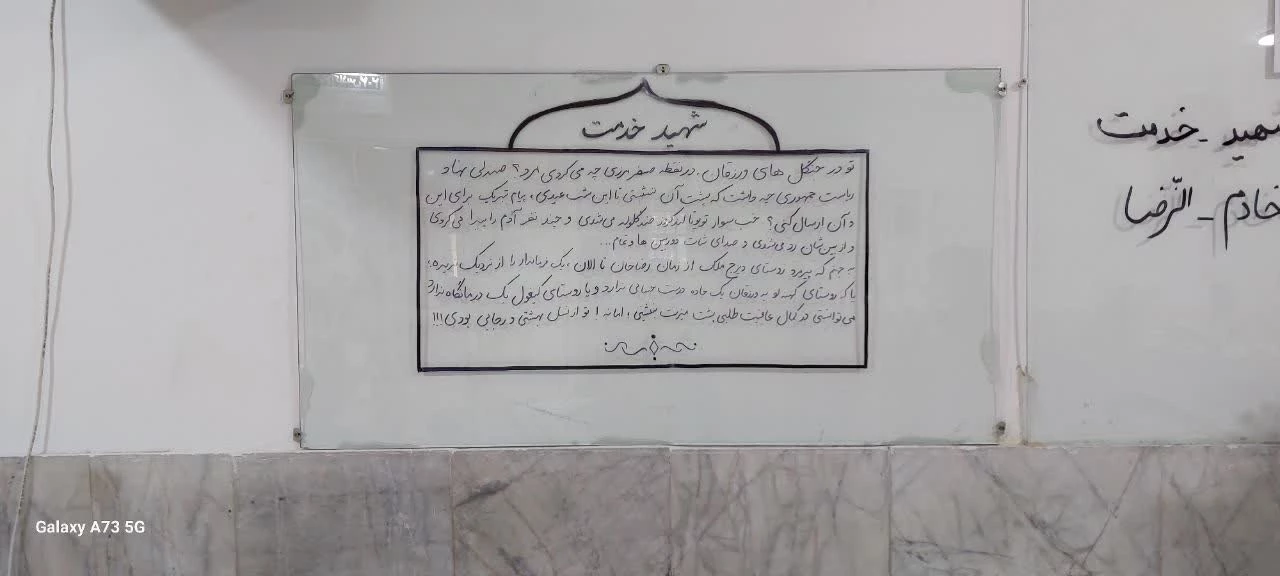 شهید خدمت
تو در جنگل های ورزقان، در نقطه صفر مرزی چه می کردی مرد؟ صندلی نهاد
ریاست جمهوری چه داشت که پشت آن ننشستی تا این شب عیدی، پیام تبریک برای این
و آن ارسال کنی؟ خب سوار تویوتا لندکروز ضد گلوله می شدی و چند نفر آدم را می کردی
و از بین شان رد می شدی و صدای شات دوربین ها و تمام...
به جهنم که پیرمرد روستای ورج ملک از زمان رضاخان تا الان، یک فرماندار را از نزدیک ندیده،
یا که روستای کهنه لو به ورزقان یک جاده درست حسابی ندارد و یا روستای کیغول یک درمانگاه ندارد
می توانستی در کمال عافیت طلبی پشت میزت بنشینی، اما نه! تو از نسل بهشتی و رجایی بودی!!!
شهید - خدمت
خادم - الرّضا
Galaxy A73 5G